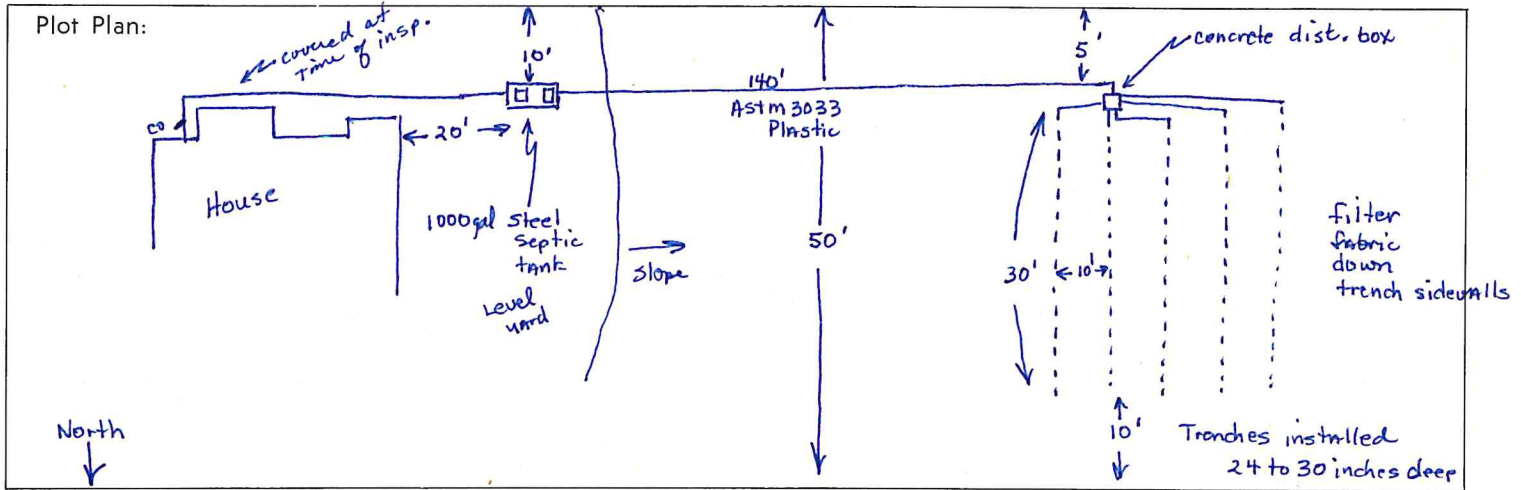 Plot Plan:
covered at
time of insp.
10'
5'
concrete dist. box
140'
Astm 3033
Plastic
CO
20'
House
1000gal Steel
Septic
tank
Level
yard
Slope
50'
30'
10'
filter
fabric
down
trench sidewalls
North
10'
Trenches installed
24 to 30 inches deep